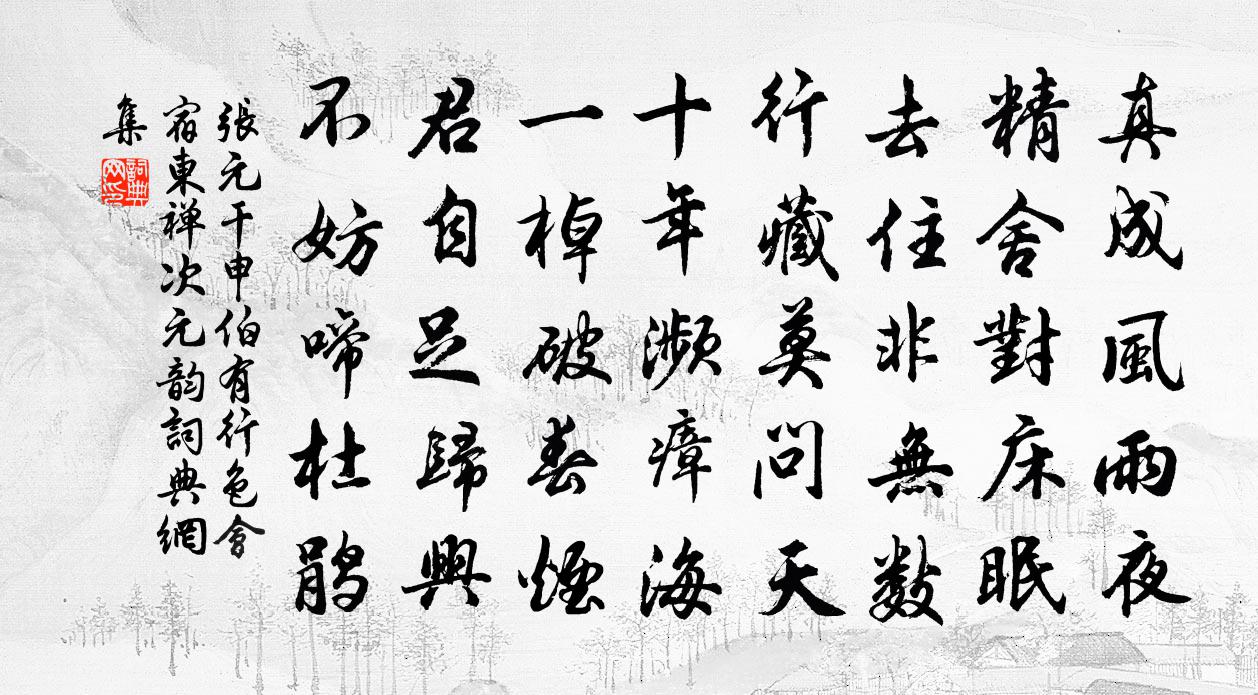 真成風雨夜
精舍對床眠
去住非無數
行藏莫問天
十年瀕瘴海
一棹破春煙
君自足歸興
不妨啼杜鹃
張元干申伯有行色會
宿東禅次元韵詞典網
集
詞典網印